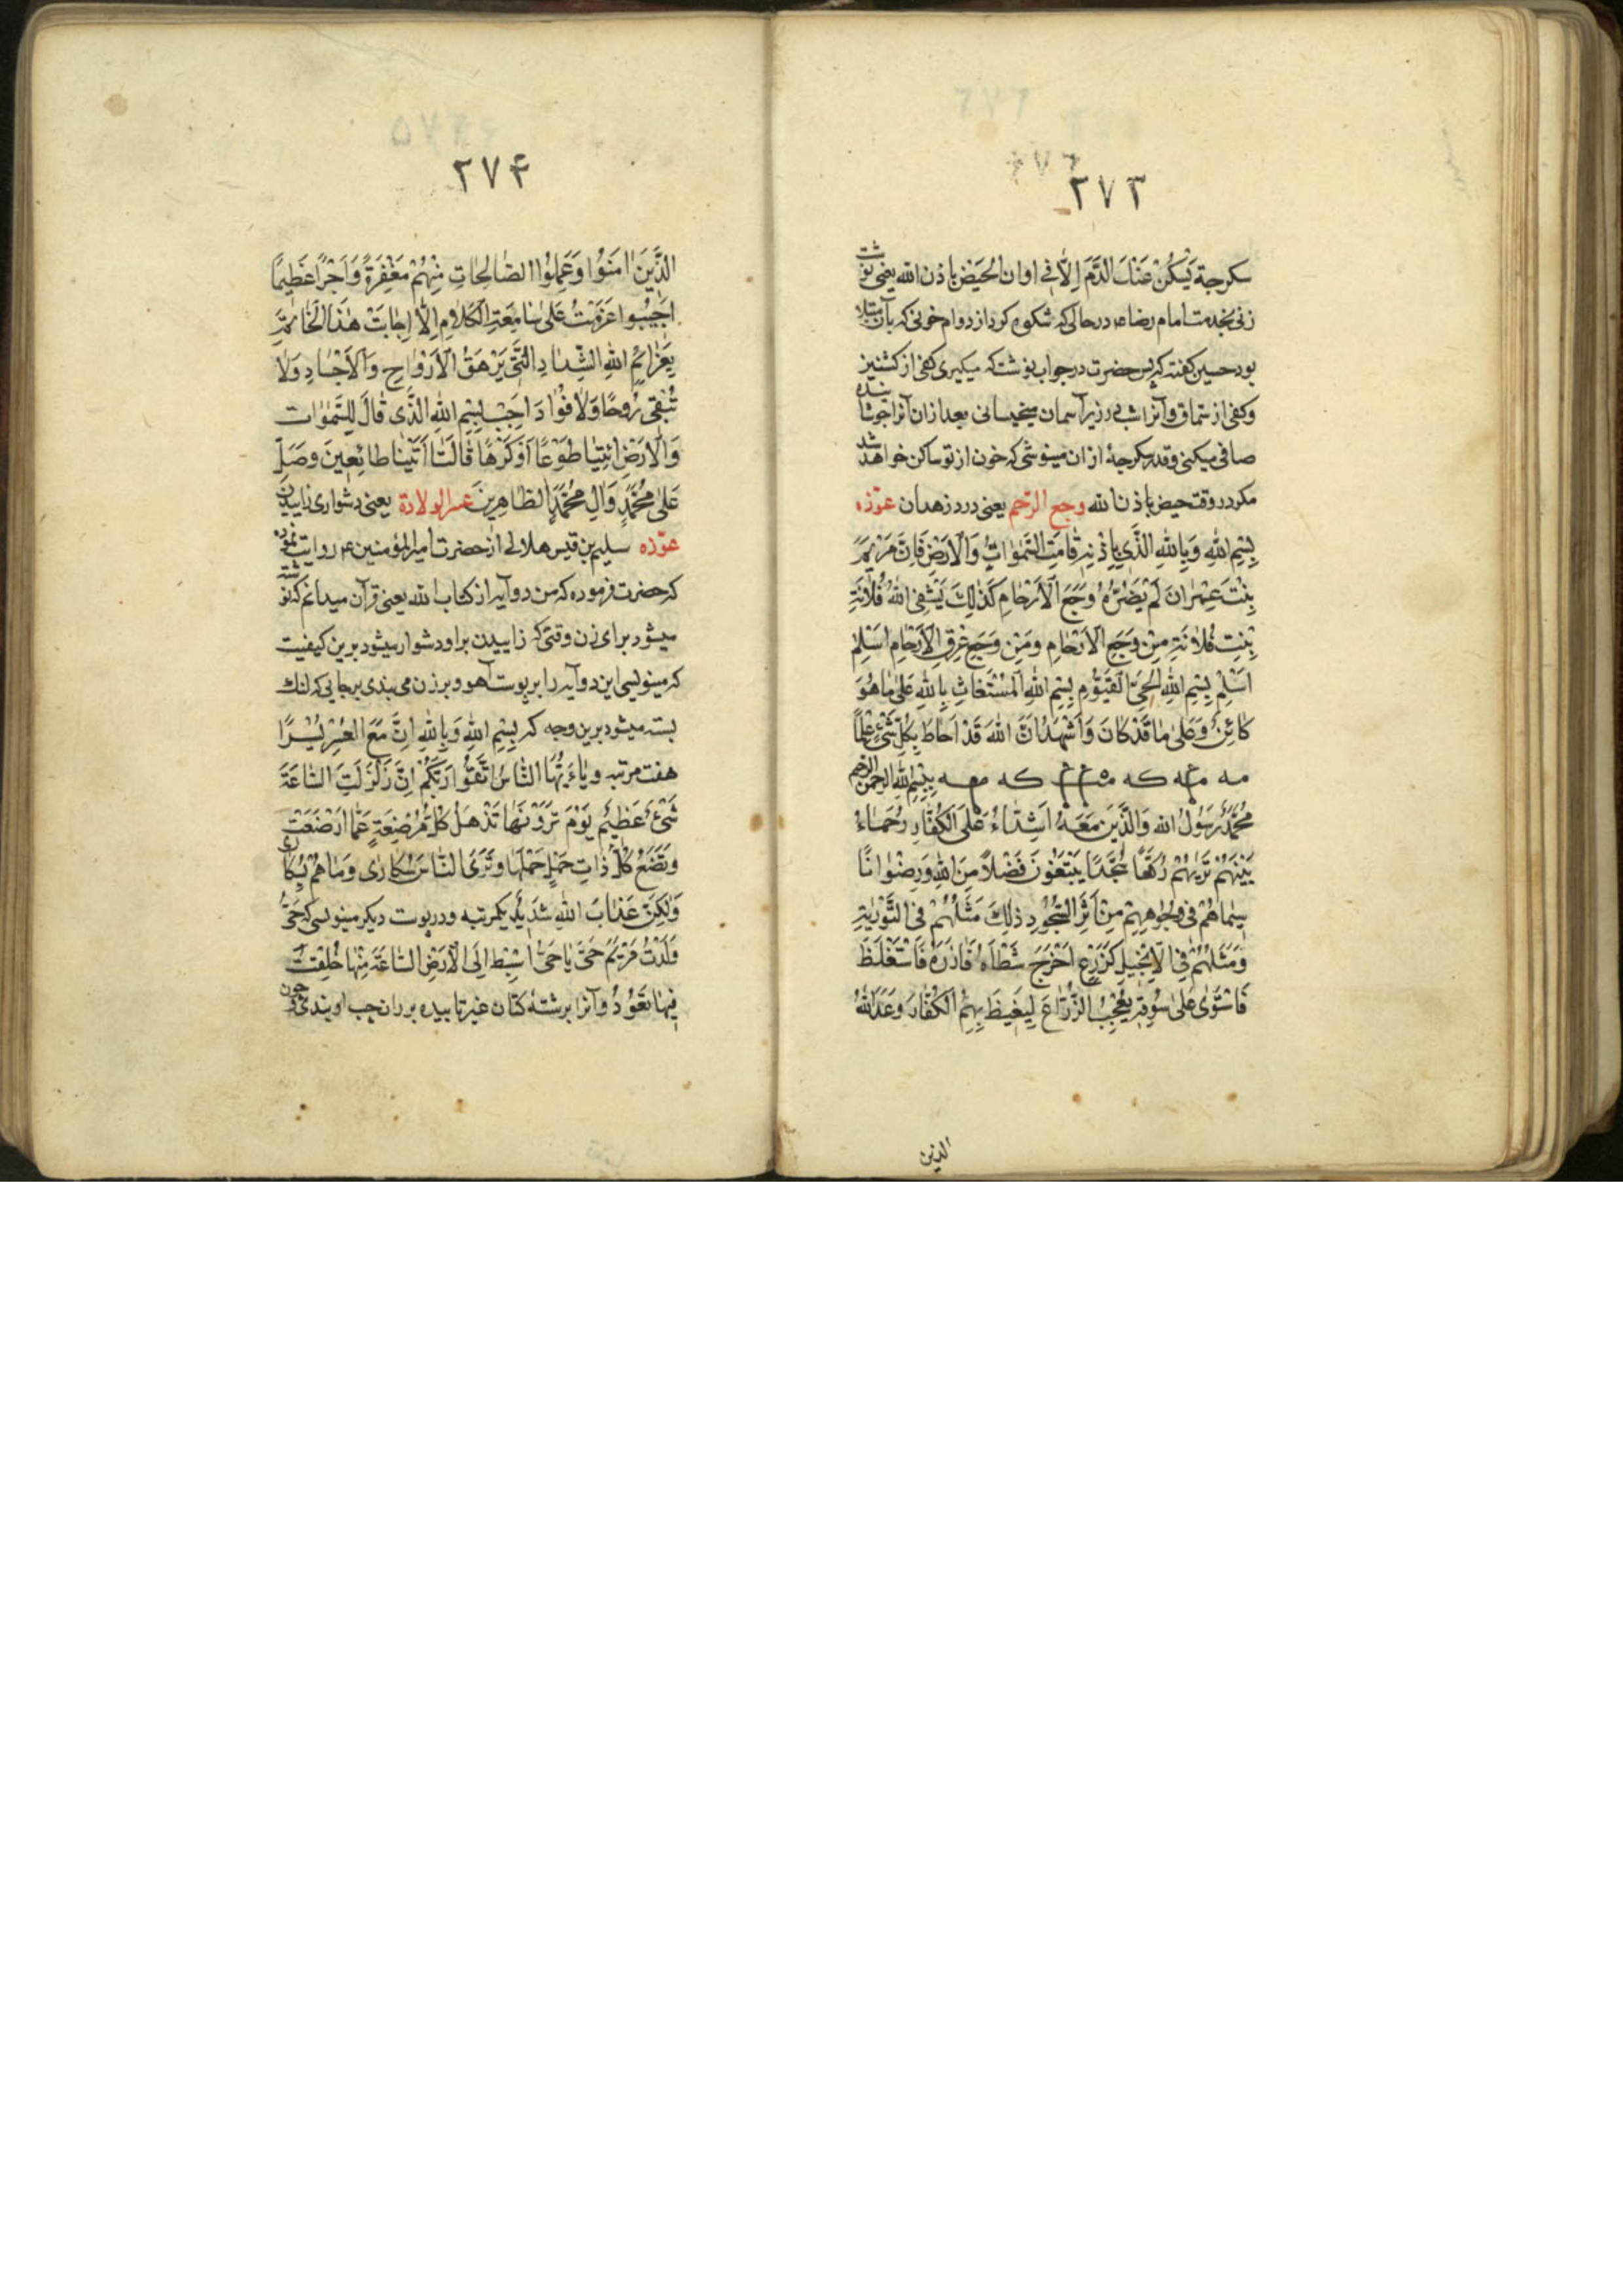 ۲۷۳
سکرجة یَسکُنْ عَنْكَ الدَّمَ اِلاّٰ فی اوان الحَیض باذن الله یعنی نوشت
زنی بخدمت امام رضا ع درحالی که شکوه کرد از دوام خونی که بآن مبتلا
بود حسین کفته که پس حضرت در جواب نوشت که میکیری کفی از کشنیز
وکفی از سماق و آنرا شبی در زیر آسمان میخیسانی بعد از آن آنرا جوشانیده
صافی میکنی و قدر سکرجهٔ از ان مینوشی که خون از تو ساکن خواهد شد
مکر در وقت حیض باذن الله وجع الرّحم یعنی درد زهدان عوّذه
بِسْمِ اللهِ وَبِاللهِ الَّذی بِاِذْنِهِ قٰامَتِ السَّمٰوٰاتُ وَالْاَرْضُ فَاِنَّ مَرْیَمَ
بِنْتَ عِمْرٰانَ لَمْ یَضُرَّهٰا وَجَعُ الْاَرْحٰامِ کَذٰلِكَ یَشْفِی اللهُ فُلٰانَةَ
بِنْتِ فُلٰانَةِ مِنْ وَجَعِ الْاَرْحٰامِ وَمِنْ وَجَعِ عِرْقِ الْاَرْحٰامِ اَسْلِمْ
اَسْلِمْ بِسْمِ اللهِ الْحَیِّ الْقَیُّوْمِ بِسْمِ اللهِ الْمُسْتَغٰاثِ بِاللهِ عَلیٰ مٰا هُوَ
کٰائِنٌ وَعَلیٰ مٰا قَدْ کٰانَ وَاَشْهَدُ اَنَّ اللهَ قَدْ اَحٰاطَ بِکُلِّ شَیْءٍ عِلْمًا
بِسْمِ اللهِ الرحمن الرحیم
مُحَمَّدٌ رَسُوْلُ الله وَالَّذِیْنَ مَعَهُ اَشِدّٰاءُ عَلَی الْکُفّٰارِ رُحَمٰاءُ
بَیْنَهُمْ تَرٰیهُمْ رُکَّعًا سُجَّدًا یَبْتَغُوْنَ فَضْلًا مِنَ اللهِ وَرِضْوٰانًا
سِیمٰاهُمْ فی وُجُوْهِهِمْ مِنْ اَثَرِ السُّجُوْدِ ذٰلِكَ مَثَلُهُمْ فی التَّوْرٰیةِ
وَمَثَلُهُمْ فی الْاِنْجیلِ کَزَرْعٍ اَخْرَجَ شَطْاَهُ فَاٰزَرَهُ فَاسْتَغْلَظَ
فَاسْتَوٰی عَلیٰ سُوْقِهِ یُعْجِبُ الزُّرّٰاعَ لِیَغیظَ بِهِمُ الْکُفّٰارَ وَعَدَ اللهُ
الذین
۲۷۴
الَّذِیْنَ اٰمَنُوْا وَعَمِلُوْا الصّٰالِحٰاتِ مِنْهُمْ مَغْفِرَةً وَاَجْرًا عَظیمًا
اَجیْبُوا عَزَمْتُ عَلیٰ سٰامِعَةِ الْکَلٰامِ اِلّٰا اَجٰابَتْ هٰذَا الْخٰاتَمَةَ
بِعَزٰائِمِ اللهِ الشِّدٰادِ الَّتی تَزْهَقُ الْاَرْوٰاحِ وَالْاَجْسٰادِ وَلٰا
تُبْقی رُوحًا وَلٰا فُوٰادَ اَجِبْ بِسْمِ اللهِ الَّذی قٰالَ لِلسَّمٰوٰات
وَالْاَرْضِ ائْتِیٰا طَوْعًا اَوْ کَرْهًا قٰالَتٰا اَتَیْنٰا طٰائِعینَ وَصَلِّ
عَلیٰ مُحَمَّدٍ وَاٰلِ مُحَمَّدٍ الطّٰاهِرینَ عسر الولادة یعنی دشواری زاییدن
عوّذه سلیم بن قیس هلالی از حضرت امیر المؤمنین ع روایت نموده
که حضرت فرموده که من دو آیه از کتاب الله یعنی قرآن میدانم که نوشته
میشود برای زن وقتی که زاییدن بر او دشوار میشود برین کیفیت
که مینویسی این دو آیه را بر پوست آهو و بر زن می بندی بر جایی که لنك
بسته میشود برین وجه که بِسْمِ اللهِ وَبِاللهِ اِنَّ مَعَ الْعُسْرِ یُسْرًا
هفت مرتبه و یٰا اَیُّهَا النّٰاسُ اتَّقُوْا رَبَّکُمْ اِنَّ زَلْزَلَةَ السّٰاعَةَ
شَیْءٌ عَظیْمٌ یَوْمَ تَرَوْنَهٰا تَذْهَلُ کُلُّ مُرْضِعَةٍ عَمّٰا اَرْضَعَتْ
وَتَضَعُ کُلُّ ذٰاتِ حَمْلٍ حَمْلَهٰا وَتَرَی النّٰاسَ سُکٰارٰی وَمٰا هُمْ بِسُکٰارٰی
وَلٰکِنَّ عَذٰابَ اللهِ شَدیْدٌ یکمرتبه و در پوست دیکر مینویسی که حَیٌّ
وَلَدْتُ مَرْیَمُ حَیٌّ یٰا حَیُّ اهْبِطْ اِلَی الْاَرْضِ السّٰاعَةَ مِنْهٰا خُلِقْتَ
فِیْهٰا تَعُوْدُ و آنرا برشتهٔ کتان غیر تابیده بر ران چپ او بندی و چون